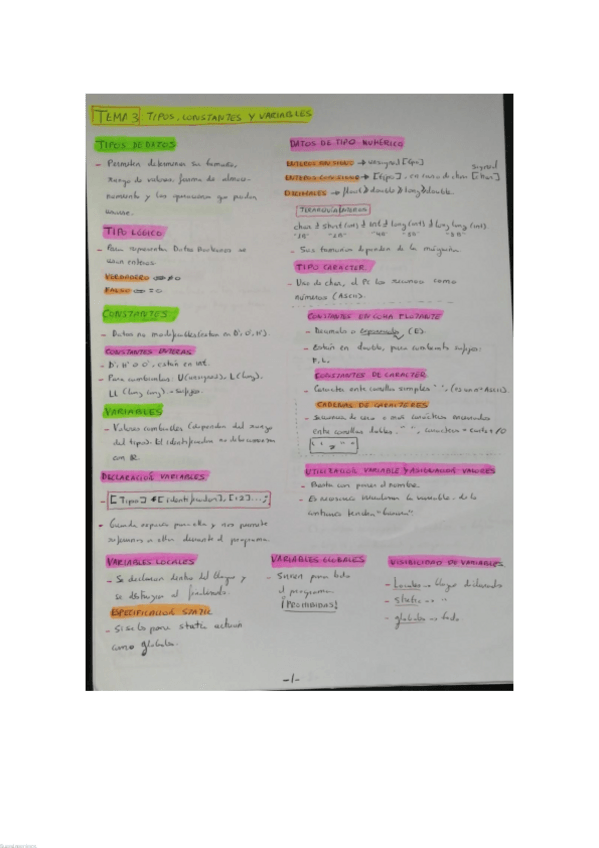 TEMA 3: TIPOS, CONSTANTES Y VARIABLES
TIPOS DE DATOS
- Permiten determinar su tamaño,
rango de valores, forma de almace-
namiento y las operaciones que pueden
TIPO LÓGICO
- Para representar Datos booleanos se
usan enteros.
VERDADERO ⇔ ≠0
FALSO ⇔ =0
CONSTANTES
- Datos no modificables (enteros en D', O', H').
CONSTANTES ENTERAS
- D', H' o O', están en int.
- Para cambiarlas: U (unsigned), L (long),
LL (long long). = Sufijos.
VARIABLES
- Valores cambiantes (dependen del rango
del tipo). El identificador no debe comenzar
con
DECLARACIÓN VARIABLES
- [Tipo] [identificador], [i2]...;
- Guarda espacio para ella y nos permite
referirnos a ella durante el programa.
VARIABLES LOCALES
- Se declaran dentro del bloque y
se destruyen al finalizarlo.
ESPECIFICADOR STATIC
- Si se le pone static actúan
como globales.
DATOS DE TIPO NUMÉRICO
ENTEROS SIN SIGNO → unsigned [tipo]
ENTEROS CON SIGNO → [tipo], en caso de char signed [char]
DECIMALES → float double long double
JERARQUÍA ENTEROS
char short (int) int long (int) long long (int).
- Sus tamaños dependen de la máquina
TIPO CARÁCTER
- Uso de char, el PC los reconoce como
números (ASCII).
CONSTANTES EN COMA FLOTANTE
- Decimales o exponenciales (E).
- Están en double, para cambiarlo sufijos:
F, L.
CONSTANTES DE CARÁCTER
- Carácter entre comillas simples ' '
CADENAS DE CARACTERES
- Secuencia de cero o más caracteres encerrados
entre comillas dobles. " ",
UTILIZACIÓN VARIABLE Y ASIGNACIÓN VALORES
- Basta con poner el nombre.
- Es necesario inicializar la variable, de lo
contrario tendrán "basura".
VARIABLES GLOBALES
- Sirven para todo
el programa.
¡PROHIBIDAS!
VISIBILIDAD DE VARIABLES
- Locales → bloque declarados
- Static → "
- globales → todo
-1-